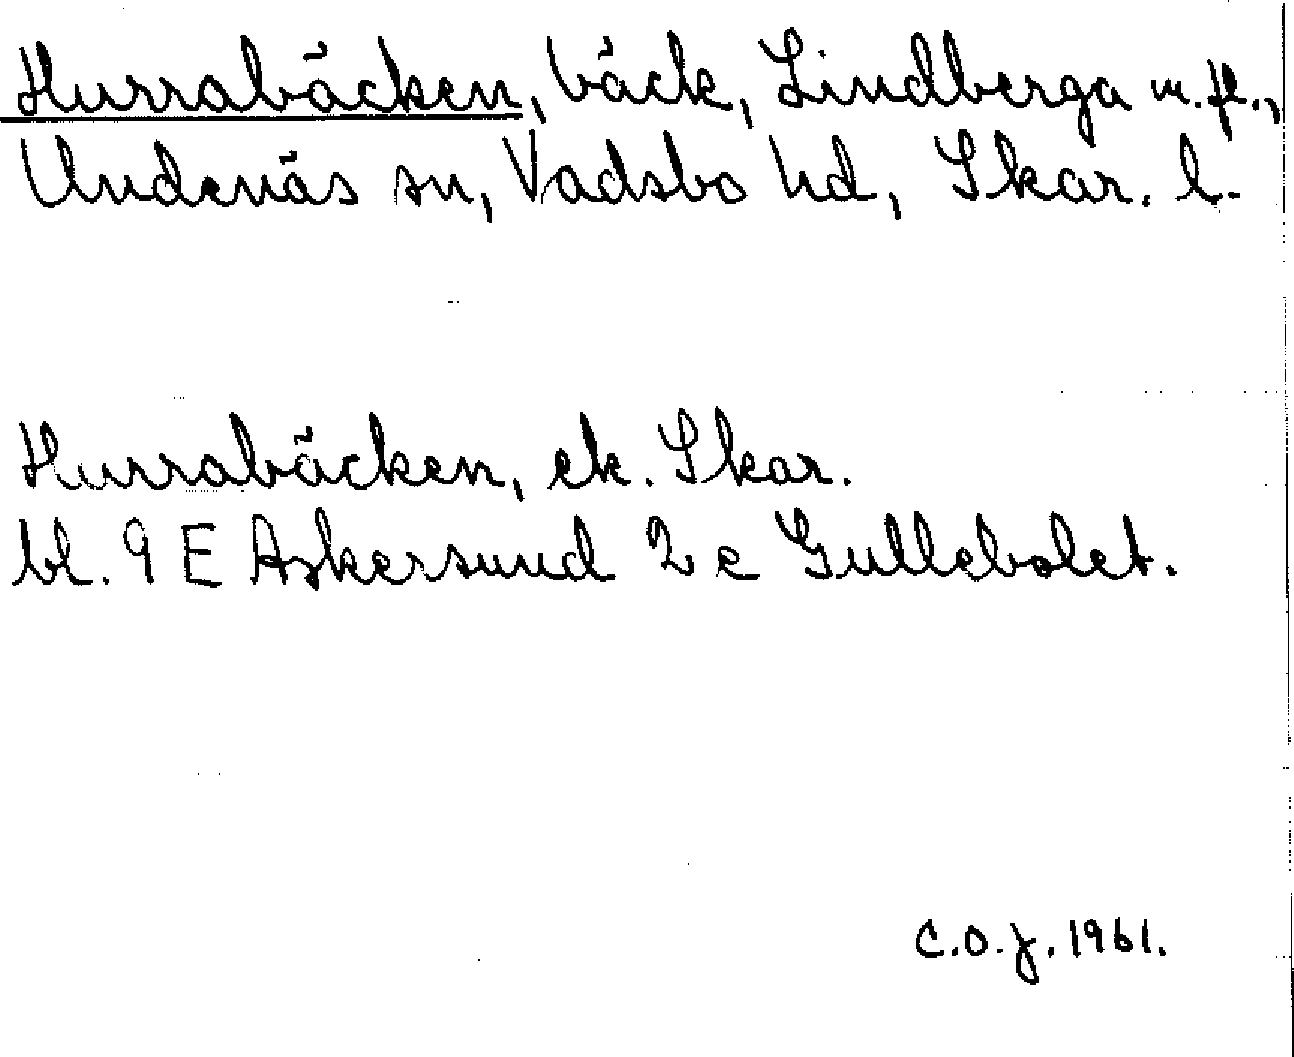 Hurrabäcken, bäck, Lindberga m.fl.,
Undenäs sn, Vadsbo hd, Skar. l.
Hurrabäcken, ek. Skar.
bl. 9 E Askersund 2 c Gullebolet.
C.O.J. 1961.